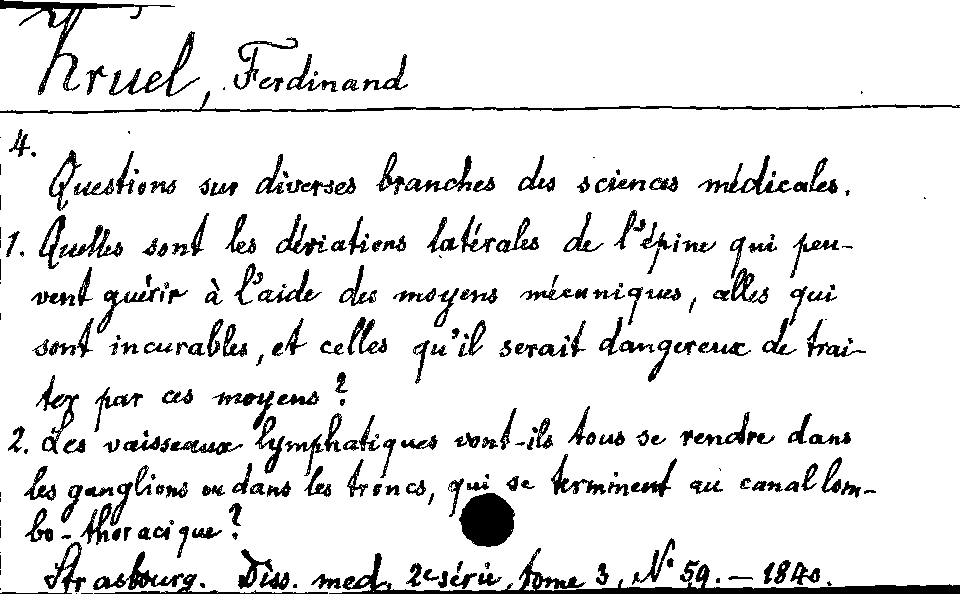 Kruel, Ferdinand
4.
Questions sur diverses branches des sciences médicales.
1. Quelles sont les déviations latérales de l'épine qui peu-
vent guérir à l'aide des moyens mécaniques, celles qui
sont incurables, et celles qu'il serait dangereux de trai-
ter par ces moyens ?
2. Les vaisseaux lymphatiques vont-ils tous se rendre dans
les ganglions ou dans les troncs, qui se terminent au canal lom-
bo-thoracique ?
Strasbourg. Diss. med. 2e série, tome 3, No 59. — 1840.